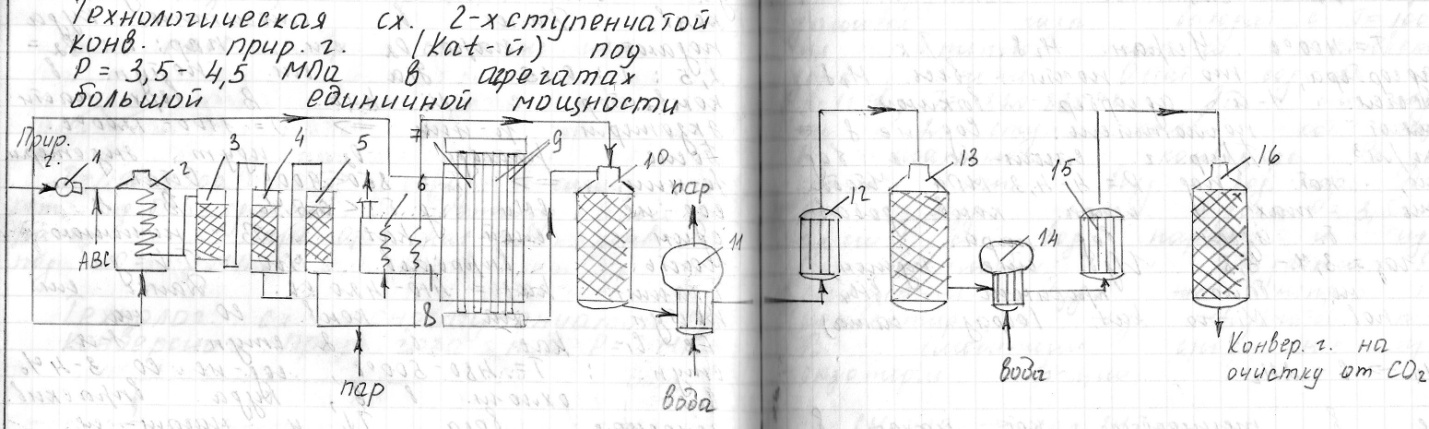 Технологическая сх. 2-хступенчатой
конв. прир. г. (Kat-й) под
P = 3,5-4,5 МПа в агрегатах
большой единичной мощности
Прир.
г.
1
2
3
4
5
7
6
9
10
АВС
8
пар
пар
11
вода
12
13
14
вода
15
16
Конвер. г. на
очистку от CO2